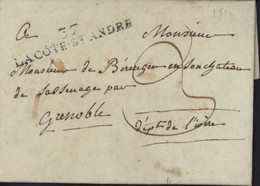 A Monsieur
37
LA COTE-ST-ANDRÉ
Monsieur de Bérenger en son château
de Sassenage par
Grenoble
dépt. de l'isère